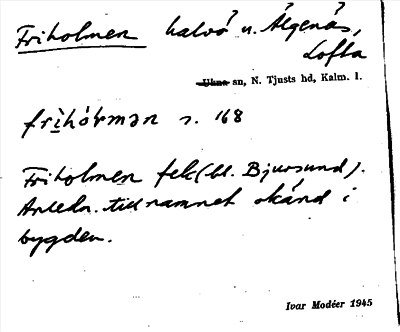 Friholmen halvö n. Älgenäs,
Lofta
Ukna sn, N. Tjusts hd, Kalm. l.
frìhórmən s. 168
Friholmen fek (bl. Bjursund).
Anledn. till namnet okänd i
bygden.
Ivar Modéer 1945